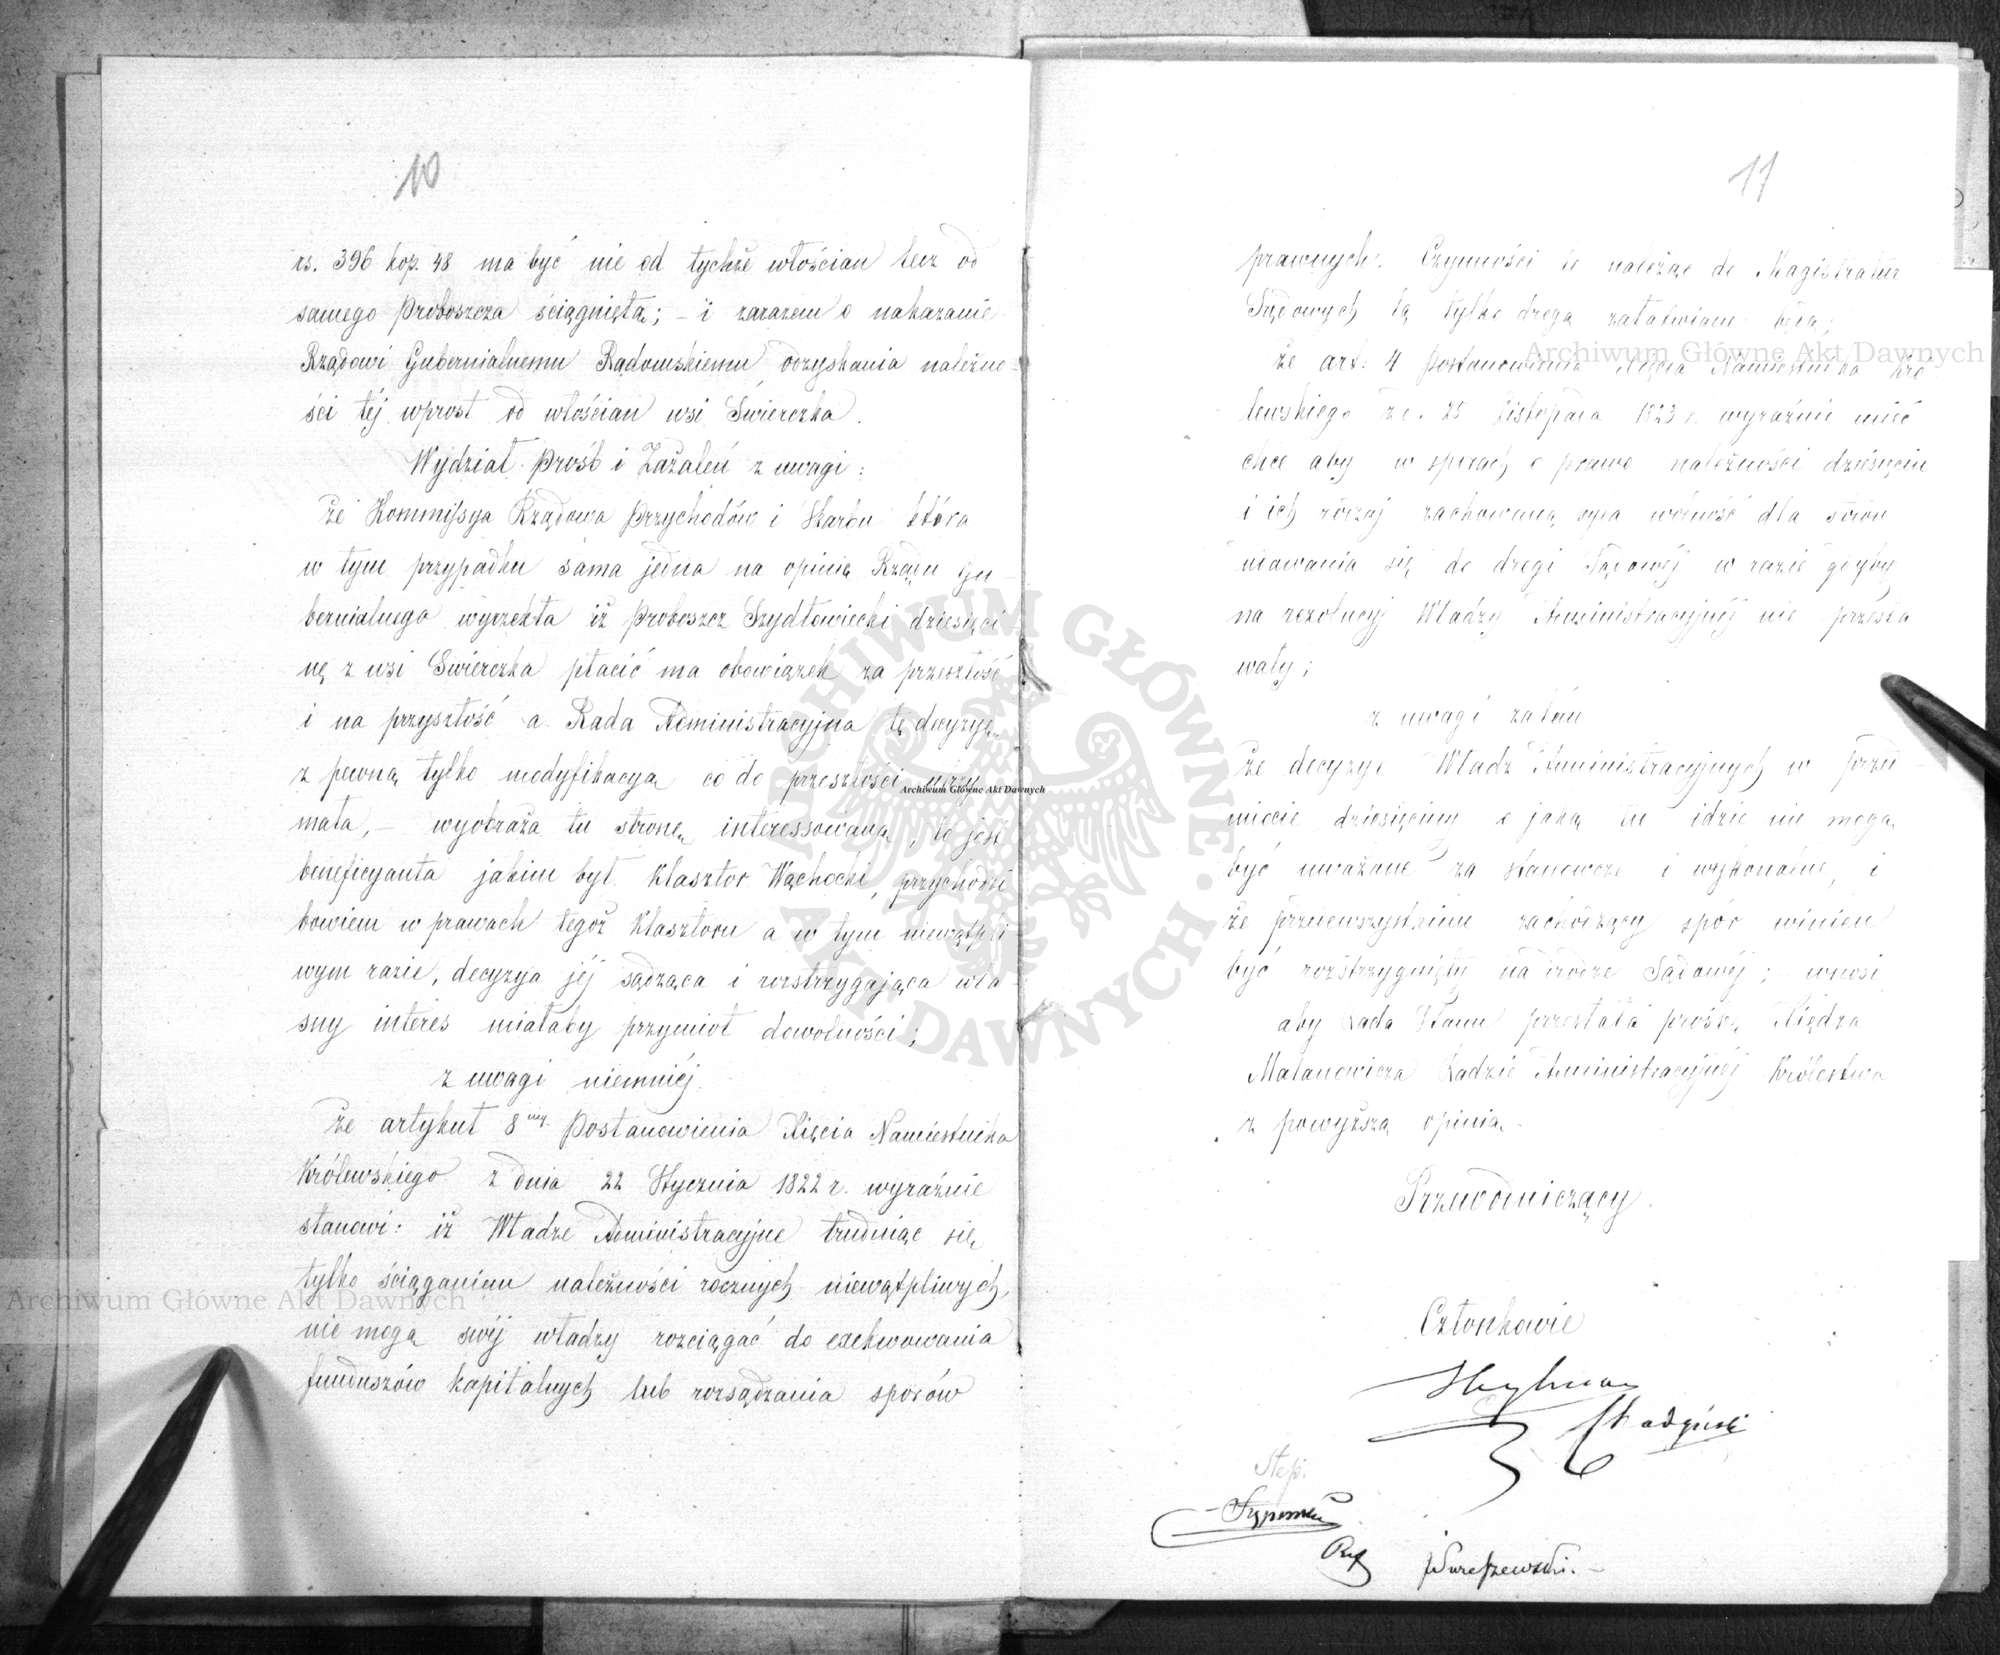 10
rs. 396 kop. 48 ma być nie od tychże włościan lecz od
samego Proboszcza ściągnięta; – i zarazem o nakazanie
Rządowi Gubernialnemu Radomskiemu odzyskania należno-
ści téj wprost od włościan wsi Świerczka.
Wydział Prośb i Zażaleń z uwagi:
że Kommissya Rządowa Przychodów i Skarbu która
w tym przypadku sama jedna na opinię Rządu Gu-
bernialnego wyrzekła iż Proboszcz Szydłowiecki dziesięci
nę z wsi Świerczka płacić ma obowiązek za przeszłość
i na przyszłość a Rada Administracyjna tę decyzyę
z pewną tylko modyfikacyą co do przeszłości utrzy
mała, – wyobraża tu stronę interessowaną, to jest
beneficyanta jakim był Klasztor Wąchocki, przychodzi
bowiem w prawach tegoż Klasztoru a w tym niewątpli
wym razie, decyzya jéj sądząca i rozstrzygająca wła-
sny interes miałaby przymiot dowolności;
z uwagi niemniéj
że artykuł 8my Postanowienia Xięcia Namiestnika
Królewskiego z dnia 22 Stycznia 1822 r. wyraźnie
stanowi: iż Władze Administracyjne trudniąc się
tylko ściąganiem należności rocznych niewątpliwych,
nie mogą swéj władzy rozciągać do exekwowania
funduszów kapitalnych lub rozsądzania sporów
11
prawnych. Czynności te należąc do Magistratur
Sądowych tą tylko drogą załatwiane będą;
że art: 4 Postanowienia Xięcia Namiestnika Kró-
lewskiego z d. 25 Listopada 1823 r. wyraźnie mieć
chce aby w sporach o prawo należności dziesięcin
i ich rodzaj zachowaną była wolność dla stron
udawania się do drogi Sądowéj w razie gdyby
na rezolucyj Władzy Administracyjnéj nie przesta-
wały;
z uwagi zatém
że decyzye Władz Administracyjnych w przed-
miocie dziesięciny o jaką tu idzie nie mogą
być uważane za stanowcze i wykonalne, i
że przedewszystkiem zachodzący spór winien
być rozstrzygnięty na drodze Sądowéj; wnosi
aby Rada Stanu przesłała prośbę Xiędza
Malanowicza Radzie Administracyjnéj Królestwa
z powyższą opinią.
Przewodniczący
Członkowie
Archiwum Główne Akt Dawnych
Archiwum Główne Akt Dawnych
Archiwum Główne Akt Dawnych
ARCHIWUM GŁÓWNE AKT DAWNYCH